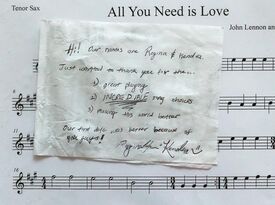 Tenor Sax
All You Need is Love
John Lennon an
Hi! Our names are Regina & Kendra.
Just wanted to thank you for the...
1) great playing
2) INCREDIBLE song choices
3) making this world better
Our first date was better because of
you guys!